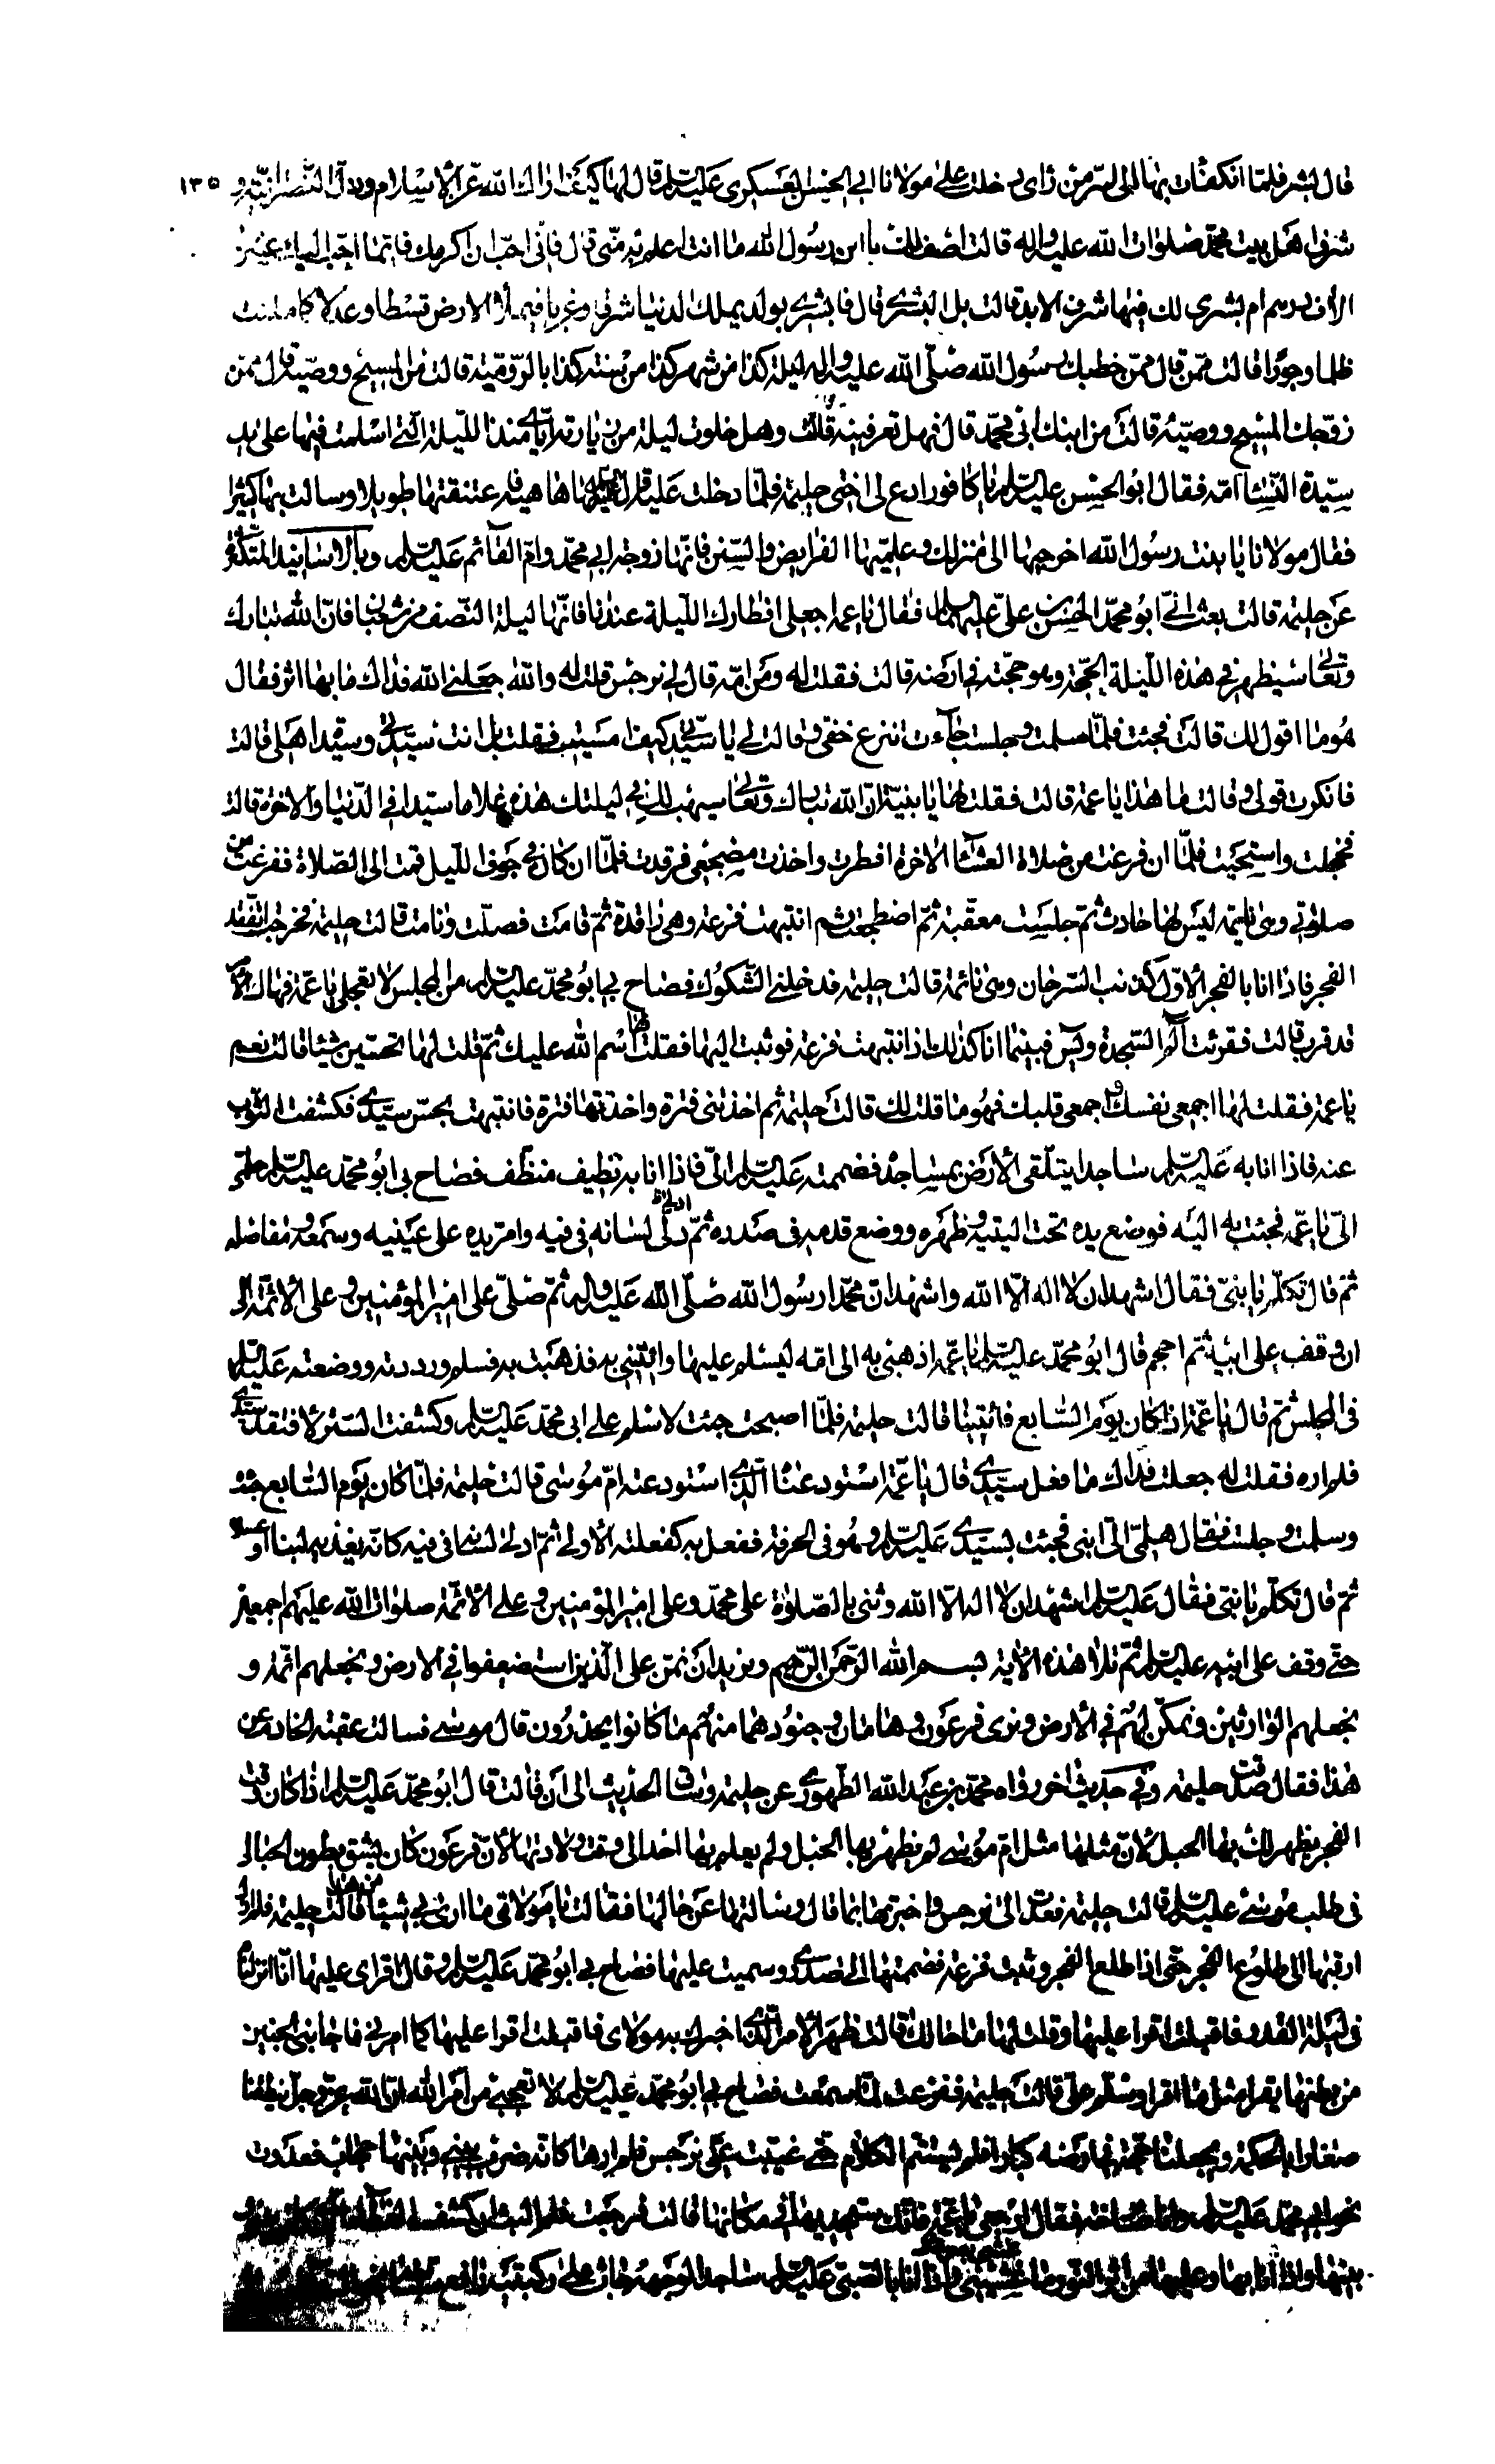 ١٣٥
قال بشر فلما انكفئات بها الى سر من راى دخلت على مولانا ابي الحسن العسكرى عليه السلام قال لها كيف اراك الله عز الأسلام وذل النصرانية و
شرف اهل بيت محمد صلوات الله عليه واله قالت اصف لك يا ابن رسول الله ما انت اعلم به منى قال فانى احب ان اكرمك فايما احب اليك عشرة
الأف درهم ام بشرى لك فيها شرف الابد قالت بل البشرى قال فابشرى بولد يملك الدنيا شرقا وغربا فيملأ الارض قسطا وعدلا كما ملئت
ظلما وجورا قالت ممن قال ممن خطبك رسول الله صلى الله عليه واله ليلة كذا من شهر كذا من سنة كذا بالرومية قالت من المسيح ووصيه قال ممن
زوجك المسيح ووصيه قالت من ابنك ابى محمد قال فهل تعرفينه قالت وهل خلوت ليلة من زيارته اياى منذ الليلة التى اسلمت فيها على يد
سيدة النساء امه فقال ابو الحسن عليه السلم يا كافور ادع لى اختى حليمة فلما دخلت عليه قال لها ها هيه فاعتنقتها طويلا وسالت بها كثيرا
فقال مولانا يا بنت رسول الله اخرجيها الى منزلك وعلميها الفرايض والسنن فانها زوجة ابى محمد وام القآئم عليه السلم وبالاسانيد المتكثرة
عن حليمة قالت بعث الى ابو محمد الحسن بن على عليهما السلم فقال يا عمه اجعلى افطارك الليلة عندنا فانها ليلة النصف من شعبان فان الله تبارك
وتعالى سيظهر فى هذه الليلة الحجة وهو حجته فى ارضه قالت فقلت له ومن امه قال لى نرجس قلت له والله جعلنى الله فداك ما بها اثر فقال
هو ما اقول لك قالت فجئت فلما سلمت وجلست جآءت تنزع خفى وقالت لى يا سيدتى كيف امسيت فقلت بل انت سيدتى وسيدة اهلى قالت
فانكرت قولى وقالت ما هذا يا عمة قالت فقلت لها يا بنية ان الله تبارك وتعالى سيهب لك فى ليلتك هذه غلاما سيدا فى الدنيا والاخرة قالت
فخجلت واستحيت فلما ان فرغت من صلاة العشاء الاخرة افطرت واخذت مضجعى فرقدت فلما ان كان فى جوف الليل قمت الى الصلاة ففرغت من
صلوتى وهى نايمة ليس لها حادث ثم جلست معقبة ثم اضطجعت ثم انتبهت فزعة وهى راقدة ثم قامت فصلت ونامت قالت حليمة فخرجت اتفقد
الفجر فاذا انا بالفجر الأول كذنب السرحان وهى نائمة قالت حليمة فدخلنى الشكوك فصاح بى ابو محمد عليه السلم من المجلس لا تعجلى يا عمة فهاك الأمر
قد قرب قالت فقرئت الم السجدة ويس فبينما انا كذلك اذ انتبهت فزعة فوثبت اليها فقلت اسم الله عليك ثم قلت لها تحسين شيئا قالت نعم
يا عمة فقلت لها اجمعى نفسك واجمعى قلبك فهو ما قلت لك قالت حليمة ثم اخذتنى فترة واخذتها فترة فانتبهت بحس سيدى فكشفت الثوب
عنه فاذا انا به عليه السلم ساجدا يتلقى الأرض بمساجده فضممته عليه السلم الى فاذا انا به نظيف منظف فصاح بى ابو محمد عليه السلم هلمى
الى يا عمه فجئت به اليه فوضع يده تحت اليتيه وظهره ووضع قدميه فى صدره ثم دلى لسانه فى فيه وامر يده على عينيه وسمعه ومفاصله
ثم قال تكلم يا بنى فقال اشهد ان لا اله الا الله واشهد ان محمدا رسول الله صلى الله عليه واله ثم صلى على امير المؤمنين وعلى الأئمة الى
ان وقف على ابيه ثم احجم قال ابو محمد عليه السلم يا عمه اذهبى به الى امه ليسلم عليها وائتينى به فذهبت به فسلم ورددته ووضعته
فى المجلس ثم قال يا عمة اذا كان يوم السابع فائتينا قالت حليمة فلما اصبحت جئت لاسلم على ابى محمد عليه السلم وكشفت الستر لافتقد سيدى
فلم اره فقلت له جعلت فداك ما فعل سيدى قال يا عمة استودعناه الذى استودعته ام موسى قالت حليمة فلما كان يوم السابع جئت
وسلمت وجلست فقال هلمى الى ابنى فجئت بسيدى عليه السلم وهو فى الخرقة ففعل به كفعلته الأولى ثم ادلى لسانه فى فيه كانه يغذيه لبنا او عسلا
ثم قال تكلم يا بنى فقال عليه السلم اشهد ان لا اله الا الله وثنى بالصلوة على محمد وعلى امير المؤمنين وعلى الائمة صلوات الله عليهم اجمعين
حتى وقف على ابيه عليه السلم ثم تلا هذه الأية بسم الله الرحمن الرحيم ونريد ان نمن على الذين استضعفوا فى الارض ونجعلهم ائمة و
نجعلهم الوارثين ونمكن لهم فى الأرض ونرى فرعون وهامان وجنودهما منهم ما كانوا يحذرون قال موسى فسالت عقبة الخادم عن
هذا فقال صدقت حليمة وفى حديث اخر رواه محمد بن عبد الله الطهوى عن حليمة وساق الحديث الى ان قالت قال ابو محمد عليه السلم اذا كان وقت
الفجر يظهر لك بها الحبل لأن مثلها مثل ام موسى لم يظهر بها الحبل ولم يعلم بها احد الى وقت ولادتها لأن فرعون كان يشق بطون الحبالى
فى طلب موسى عليه السلم قالت حليمة فعدت الى نرجس واخبرتها بما قال وسالتها عن حالها فقالت يا مولاتى ما ارى بى شيئا من هذا قالت حليمة فلم ازل
ارقبها الى طلوع الفجر حتى اذا طلع الفجر وثبت فزعة فضممتها الى صدرى وسميت عليها فصاح بى ابو محمد عليه السلم وقال اقراى عليها انا انزلناه
فى ليلة القدر فاقبلت اقرا عليها وقلت لها ما حالك قالت ظهر الأمر الذى اخبرك به مولاى فاقبلت اقرا عليها كما امرنى فاجابنى الجنين
من بطنها يقرا مثل ما اقرا وسلم على قالت حليمة ففزعت لما سمعت فصاح بى ابو محمد عليه السلم لا تعجبى من امر الله ان الله عز وجل ينطقنا
صغارا بالحكمة ويجعلنا حجة فى ارضه كبارا فلم يستتم الكلام حتى غيبت عنى نرجس فلم ارها كانه ضرب بينى وبينها حجاب فعدوت
نحو ابى محمد عليه السلم وانا صارخة فقال ارجعى يا عمة فانك ستجديها فى مكانها قالت فرجعت فلم البث ان كشف
بينها واذا انا بها وعليها من اثر النور ما غشينى واذا انا بالصبى عليه السلم ساجدا لوجهه جاث على ركبتيه رافع